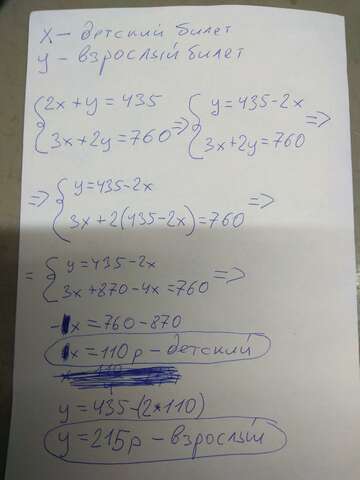 x – детский билет
y – взрослый билет
{2x+y=435 => {y=435-2x =>
{3x+2y=760 {3x+2y=760
=> {y=435-2x =>
{3x+2(435-2x)=760
= {y=435-2x =>
{3x+870-4x=760
-1x=760-870
1x=110р – детский
y=435-(2*110)
y=215р – взрослый